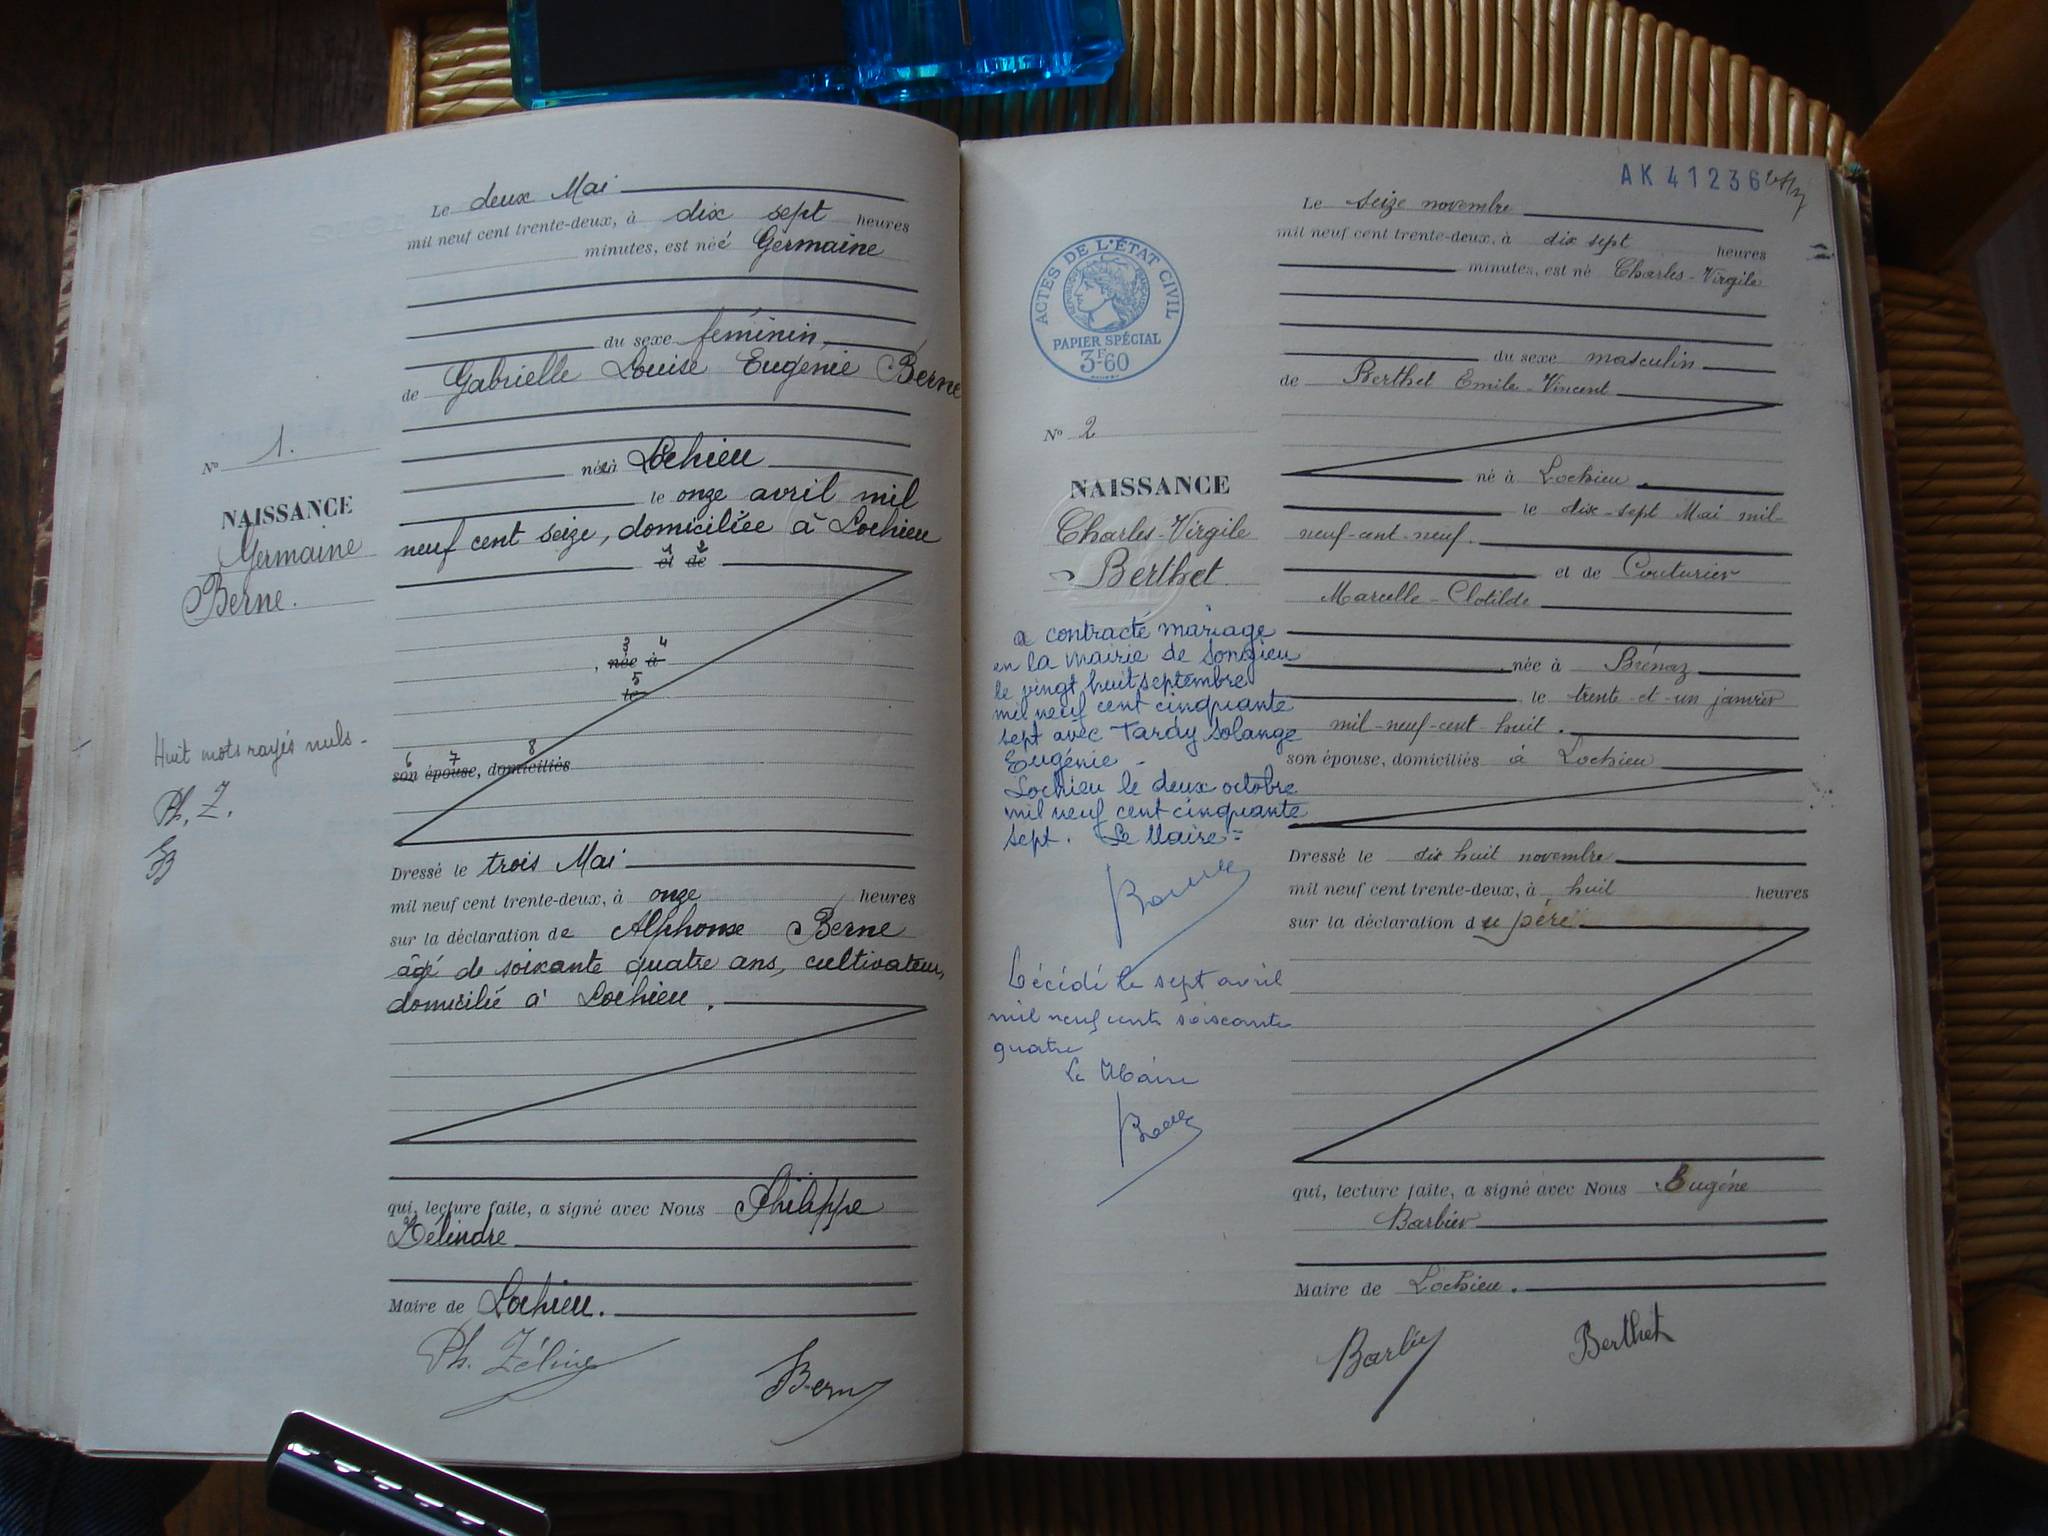 Le deux Mai
mil neuf cent trente-deux, à dix sept heures
minutes, est née Germaine
du sexe féminin
de Gabrielle Louise Eugénie Berne
née à Lochieu
le onze avril mil
neuf cent seize, domiciliée à Lochieu
1 2
et de
3 4
, née à
5
le
6 7 8
son épouse, domiciliés
Dressé le trois Mai
mil neuf cent trente-deux, à onze heures
sur la déclaration de Alphonse Berne
âgé de soixante quatre ans, cultivateur,
domicilié à Lochieu.
qui, lecture faite, a signé avec Nous Philippe
Zélindre
Maire de Lochieu.
Berne
No 1.
NAISSANCE
Germaine
Berne.
Huit mots rayés nuls -
Ph. Z.
AK 41236
Le seize novembre
mil neuf cent trente-deux, à dix sept heures
minutes, est né Charles-Virgile
du sexe masculin
de Berthet Emile-Vincent
né à Lochieu.
le dix-sept Mai mil-
neuf-cent-neuf.
et de Couturier
Marcelle-Clotilde
née à Brénaz
le trente-et-un janvier
mil-neuf-cent huit.
son épouse, domiciliés à Lochieu
Dressé le dix huit novembre
mil neuf cent trente-deux, à huit heures
sur la déclaration du père
qui, lecture faite, a signé avec Nous Eugène
Barbier
Maire de Lochieu.
Berthet
ACTES DE L'ÉTAT CIVIL
RÉPUBLIQUE FRANÇAISE
PAPIER SPÉCIAL
3F-60
No 2
NAISSANCE
Charles-Virgile
Berthet
a contracté mariage
en la mairie de Songieu
le vingt huit septembre
mil neuf cent cinquante
sept avec Tardy Solange
Eugénie -
Lochieu le deux octobre
mil neuf cent cinquante
sept. Le Maire =
Décédé le sept avril
mil neuf cent soixante
quatre
Le Maire